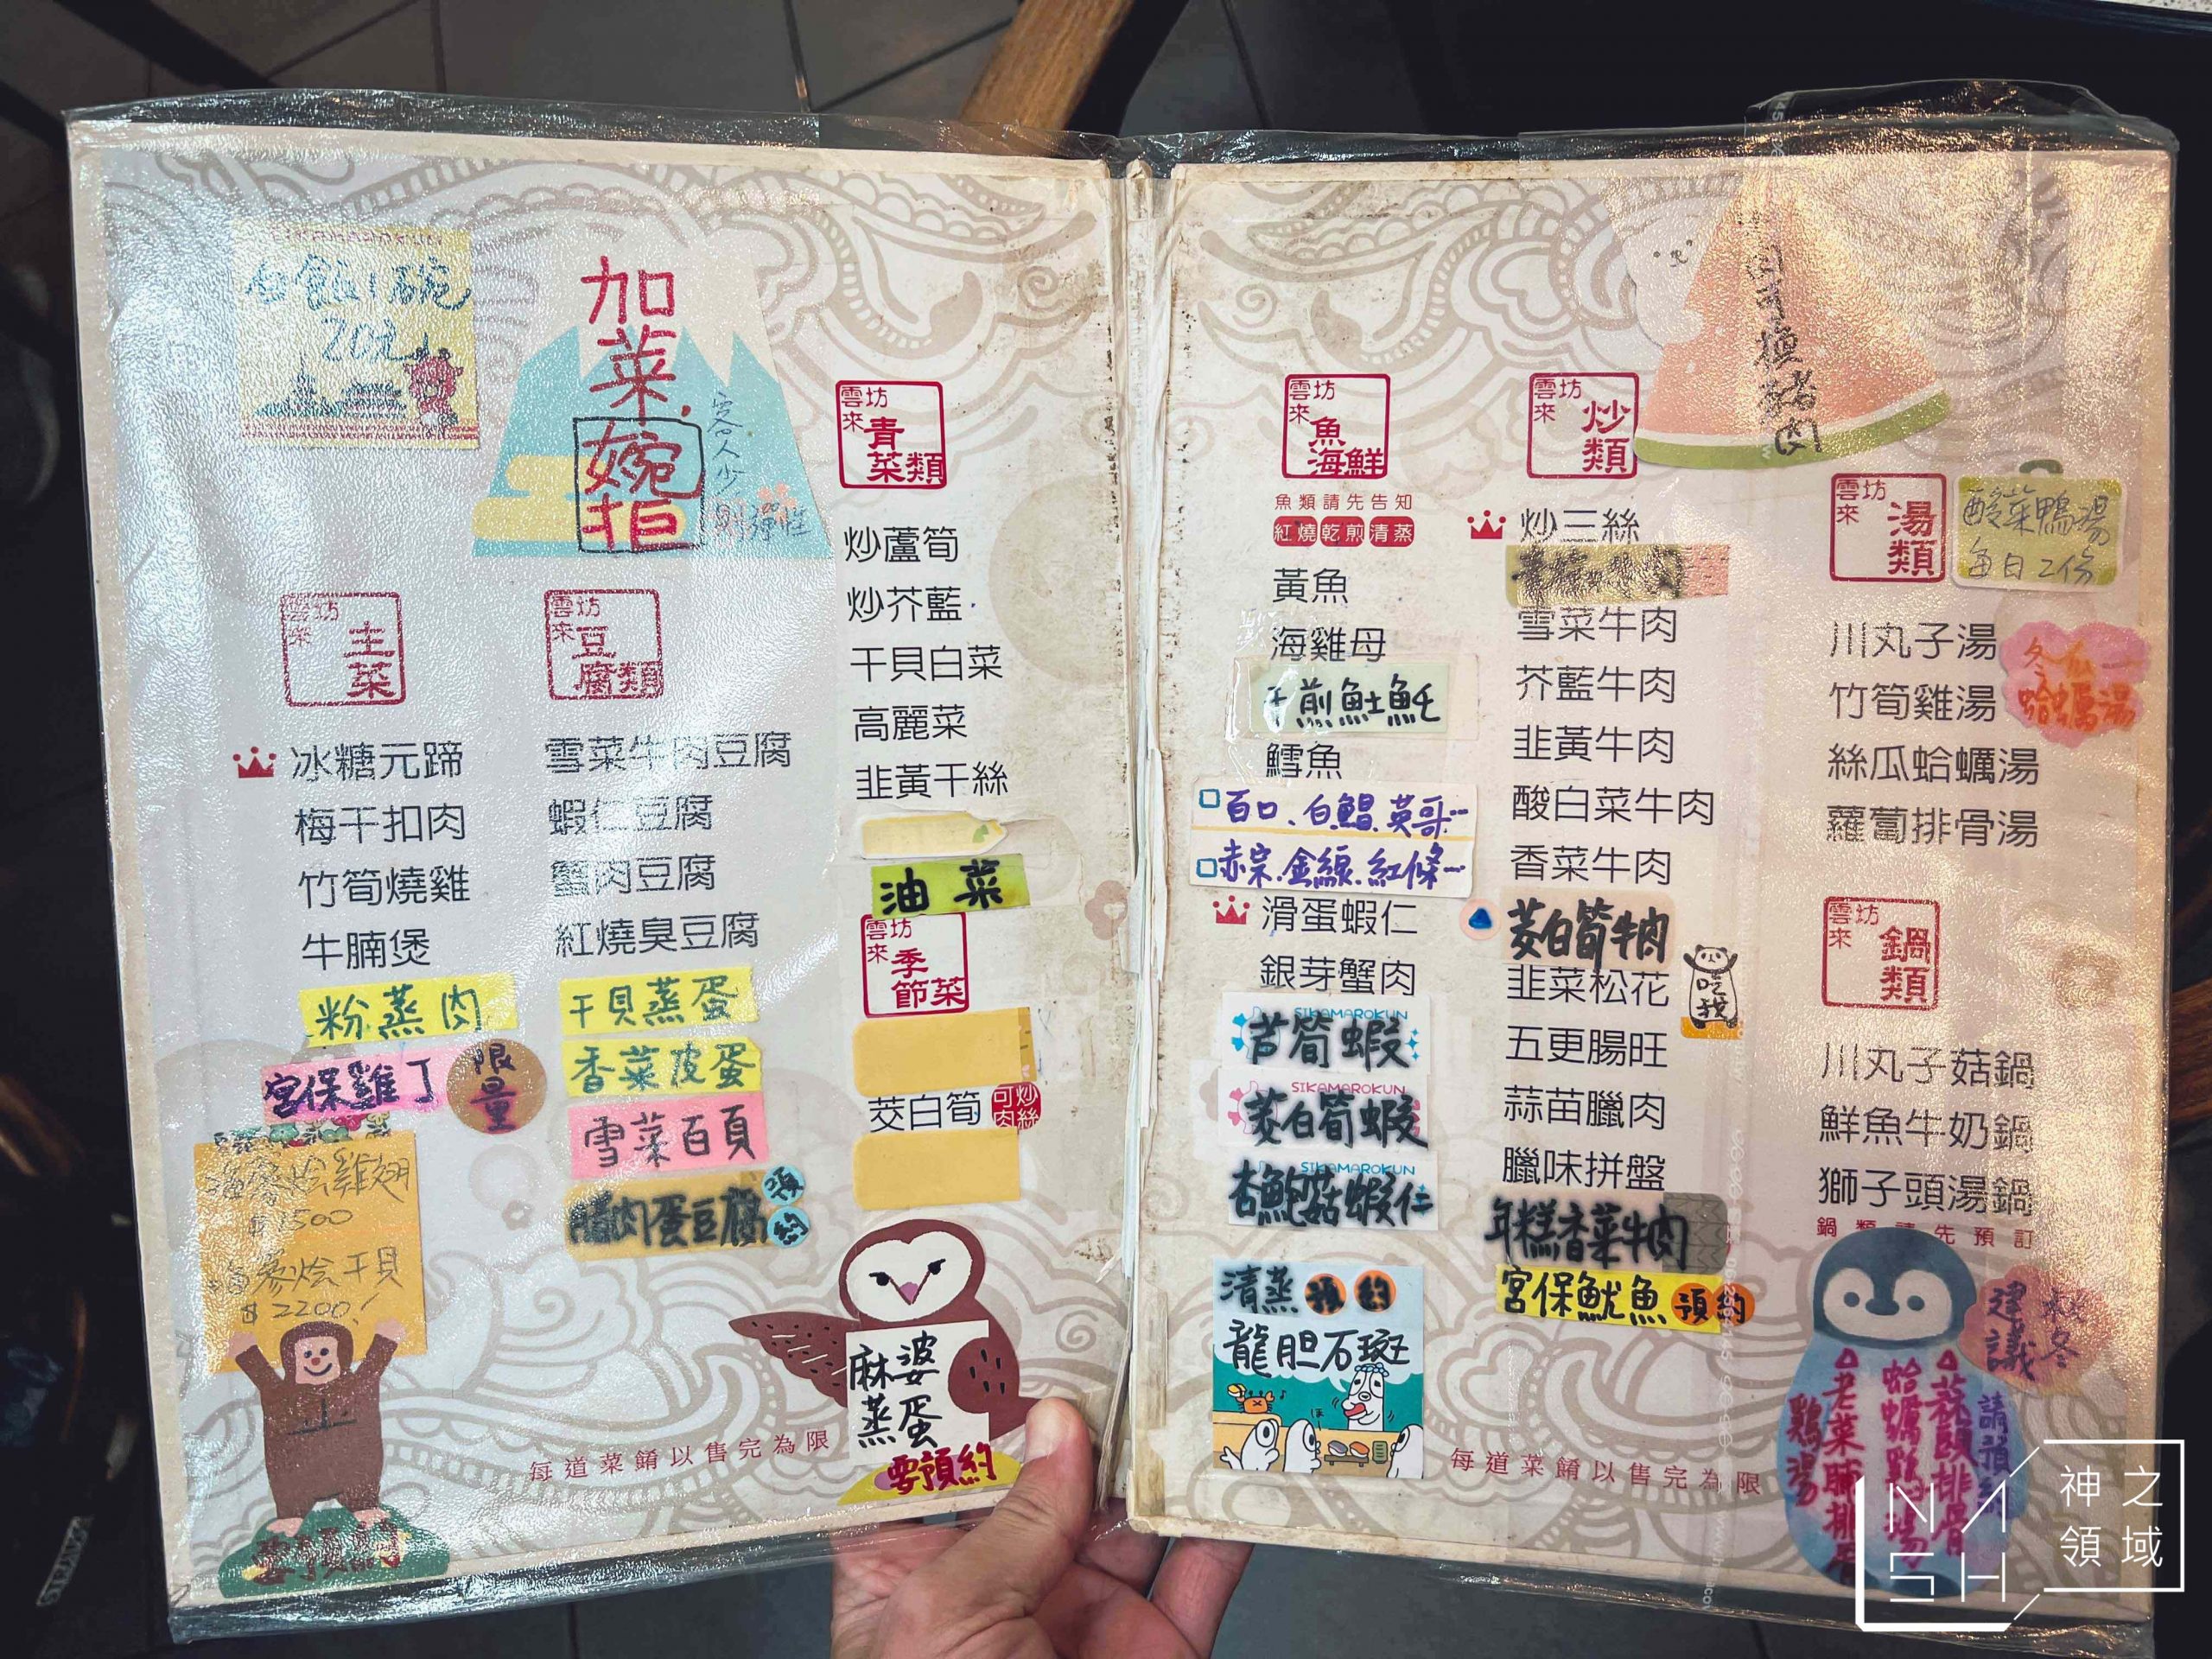 白飯1碗
20元
加菜,
婉拒
客人少
則彈性
雲坊來
主菜
冰糖元蹄
梅干扣肉
竹筍燒雞
牛腩煲
粉蒸肉
宮保雞丁
限量
海參燴雞翅
$1500
海參燴干貝
$2200!
雲坊來
豆腐類
雪菜牛肉豆腐
蝦仁豆腐
蟹肉豆腐
紅燒臭豆腐
干貝蒸蛋
香菜皮蛋
雪菜百頁
腊肉蛋豆腐
預約
雲坊來
青菜類
炒蘆筍
炒芥藍
干貝白菜
高麗菜
韭黃干絲
油菜
雲坊來
季節菜
茭白筍
可炒肉絲
麻婆
蒸蛋
要預約
每道菜餚以售完為限
雲坊來
魚海鮮
魚類請先告知
紅燒 乾煎 清蒸
黃魚
海雞母
干煎魠
鱈魚
百口、白鯧、英哥…
赤宗、金線、紅條…
滑蛋蝦仁
銀芽蟹肉
SIKAMAROKUN
芦筍蝦
SIKAMAROKUN
茭白筍蝦
SIKAMAROKUN
杏鮑菇蝦仁
清蒸 預約
龍胆石斑
雲坊來
炒類
炒三絲
雪菜牛肉
芥藍牛肉
韭黃牛肉
酸白菜牛肉
香菜牛肉
茭白筍牛肉
韭菜松花
吃我
五更腸旺
蒜苗臘肉
臘味拼盤
年糕香菜牛肉
宮保魷魚 預約
每道菜餚以售完為限
可換豬肉
雲坊來
湯類
酸菜鴨湯
每日2份
川丸子湯
竹筍雞湯
絲瓜蛤蠣湯
蘿蔔排骨湯
冬瓜
蛤蠣湯
雲坊來
鍋類
川丸子菇鍋
鮮魚牛奶鍋
獅子頭湯鍋
鍋類請先預訂
建議
請預約
蒜頭排骨
蛤蠣雞湯
老菜脯排骨
雞湯
NASH
神之領域